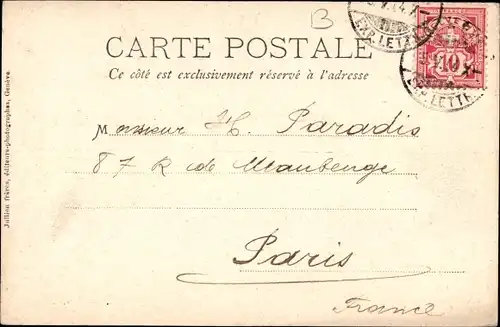 B
CARTE POSTALE
Ce côté est exclusivement réservé à l'adresse
EXP. LETTR.
10
EXP. LETTR.
Monsieur H. Paradis
87 R de Maubeuge
Paris
France
Jullien frères, éditeurs-photographes, Genève